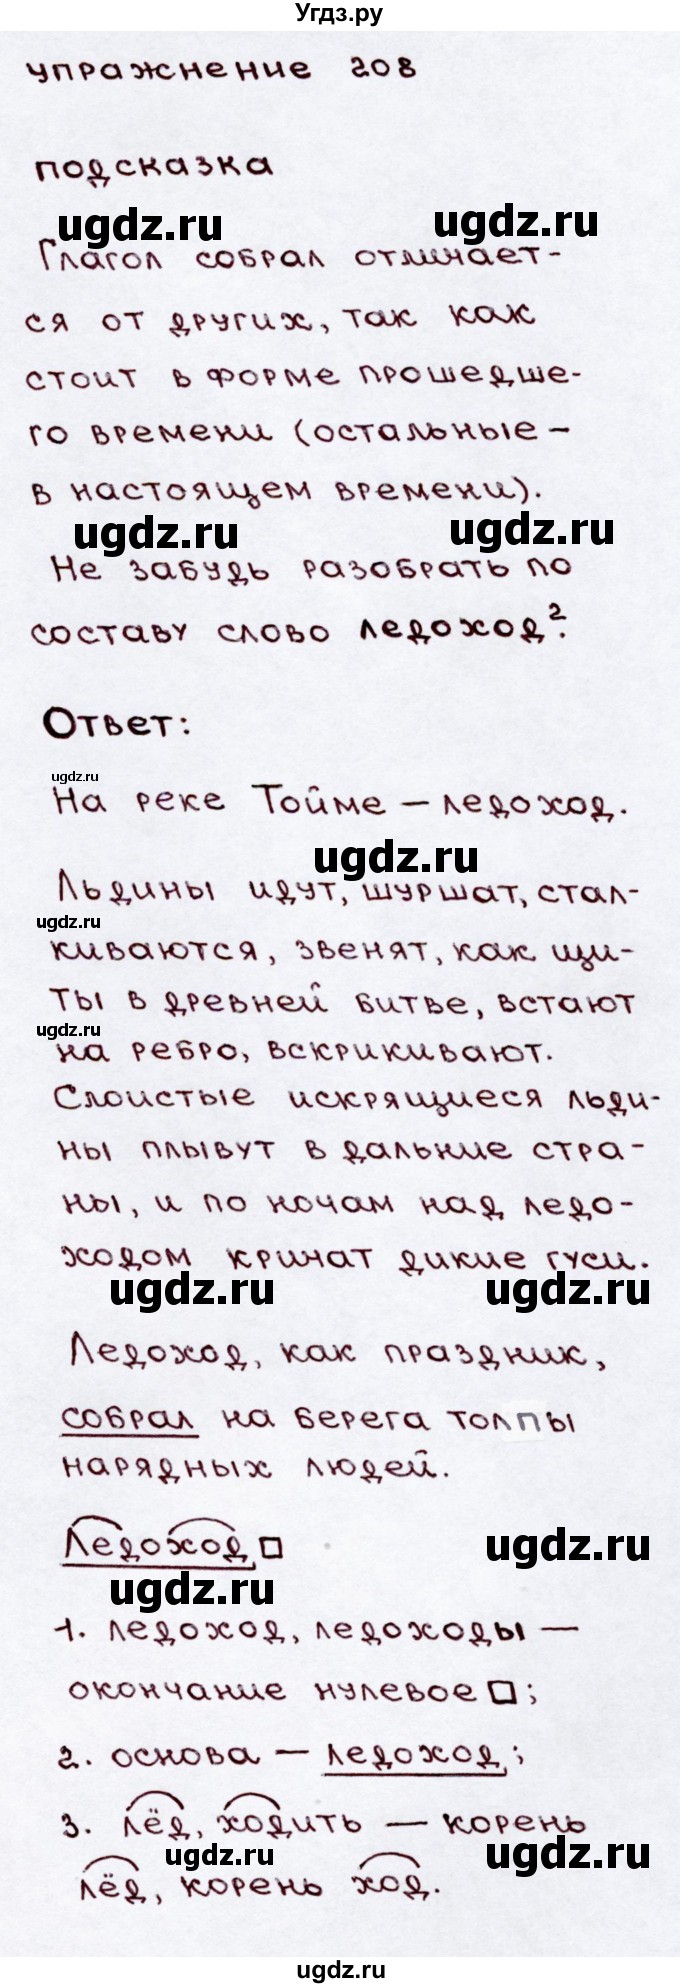 Угдз.ру
упражнение 208
подсказка
ugdz.ru ugdz.ru
Глагол собрал отличает-
ся от других, так как
стоит в форме прошедше-
го времени (остальные –
в настоящем времени).
ugdz.ru ugdz.ru
Не забудь разобрать по
составу слово ледоход².
Ответ:
ugdz.ru
На реке Тойме – ледоход.
ugdz.ru
Льдины идут, шуршат, стал-
ugdz.ru
киваются, звенят, как щи-
ты в древней битве, встают
ugdz.ru
на ребро, вскрикивают.
Слоистые искрящиеся льди-
ны плывут в дальние стра-
ны, и по ночам над ледо-
ходом кричат дикие гуси.
ugdz.ru ugdz.ru
Ледоход, как праздник,
собрал на берега толпы
нарядных людей.
Ледоход
ugdz.ru
ugdz.ru
1. ледоход, ледоходы –
окончание нулевое ;
2. основа – ледоход;
3. лёд, ходить – корень
ugdz.ru ugdz.ru
лёд, корень ход.
ugdz.ru